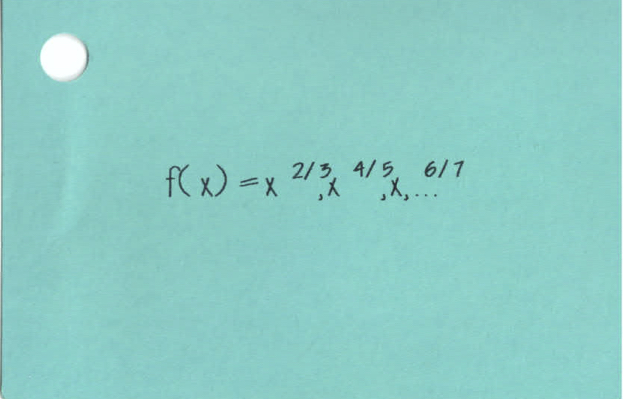 f(x) = x 2/3, x 4/5, x, 6/7 ...